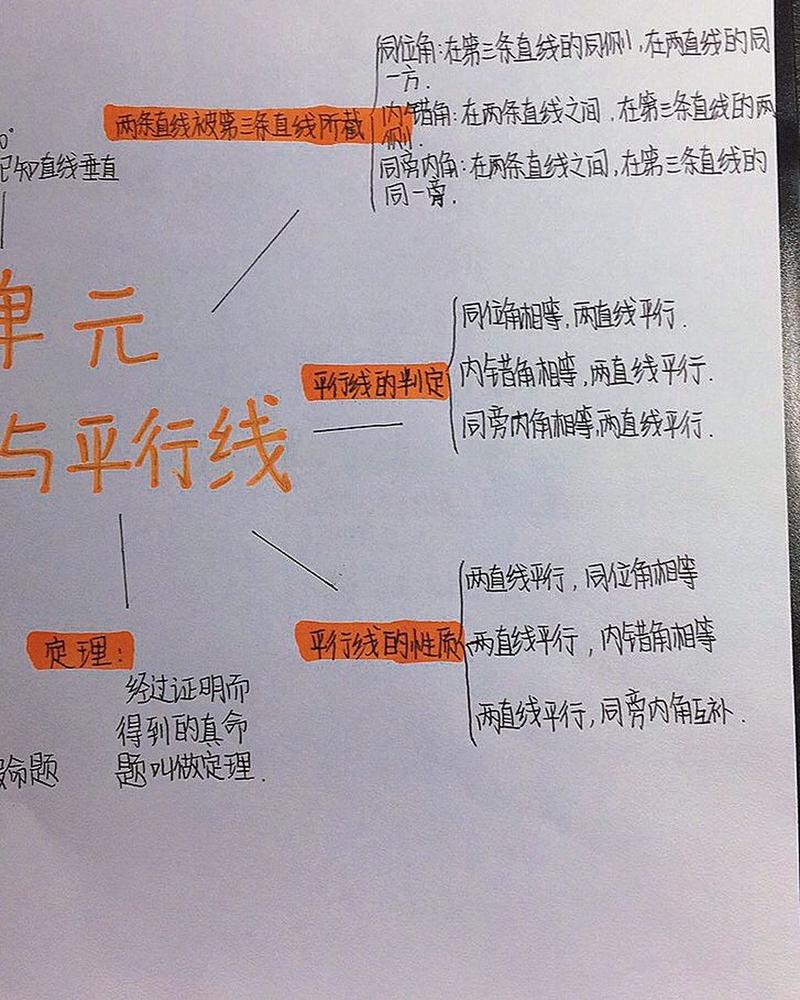 同位角:在第三条直线的同侧,在两直线的同
一方.
两条直线被第三条直线所截
内错角:在两条直线之间,在第三条直线的两
侧.
同旁内角:在两条直线之间,在第三条直线的
同一旁.
0°
已知直线垂直
单元
与平行线
平行线的判定
同位角相等,两直线平行.
内错角相等,两直线平行.
同旁内角相等,两直线平行.
平行线的性质
两直线平行,同位角相等
两直线平行,内错角相等
两直线平行,同旁内角互补.
定理:
经过证明而
得到的真命
题叫做定理.
命题